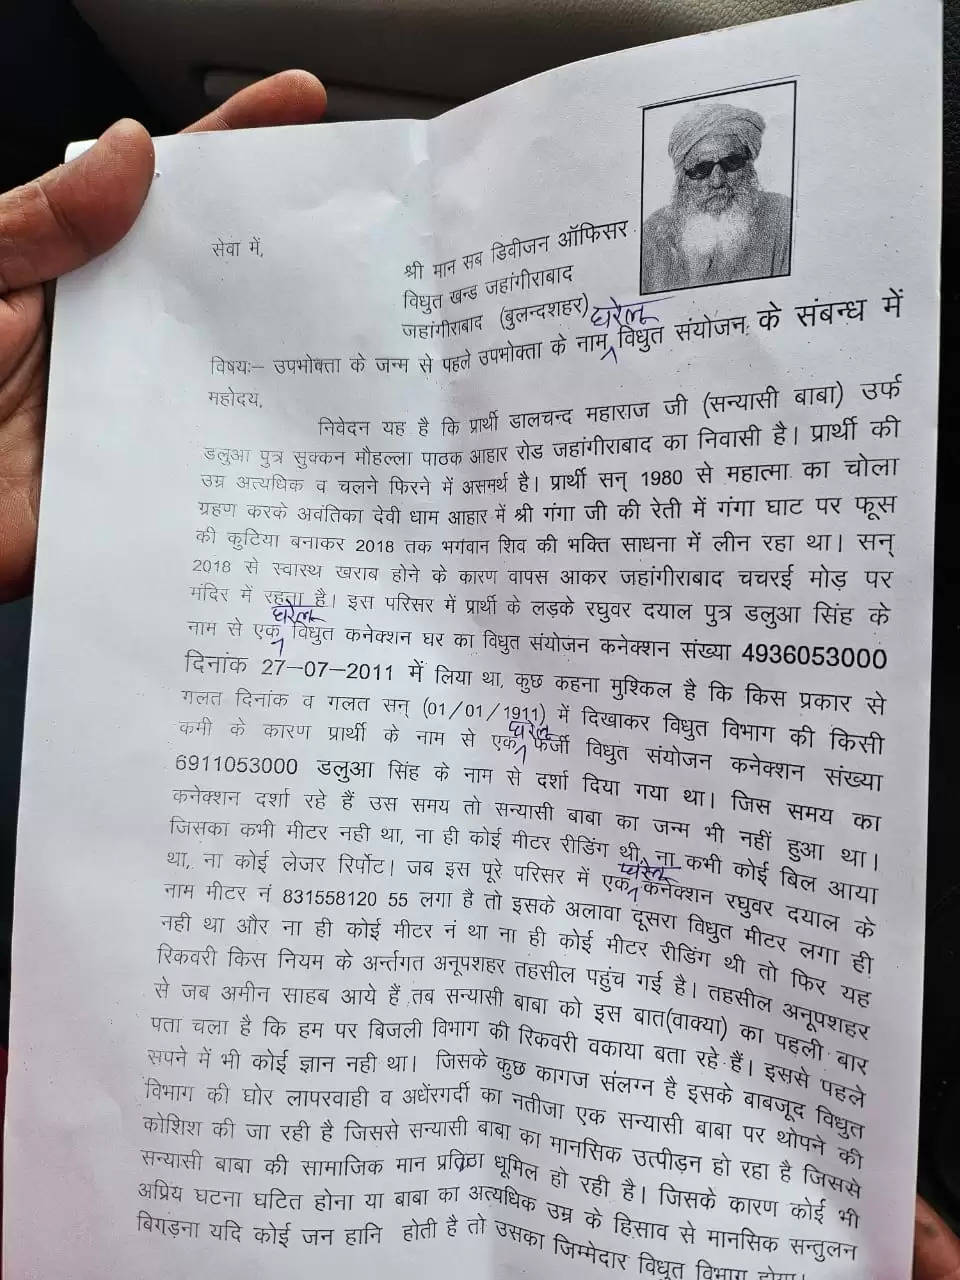 सेवा में,
श्री मान सब डिवीजन ऑफिसर
विधुत खन्ड जहांगीराबाद
जहांगीराबाद (बुलन्दशहर)
विषयः– उपभोक्ता के जन्म से पहले उपभोक्ता के नाम घरेलू विधुत संयोजन के संबन्ध में
महोदय,
निवेदन यह है कि प्रार्थी डालचन्द महाराज जी (सन्यासी बाबा) उर्फ
डलुआ पुत्र सुक्कन मौहल्ला पाठक आहार रोड जहांगीराबाद का निवासी है। प्रार्थी की
उम्र अत्यधिक व चलने फिरने में असमर्थ है। प्रार्थी सन् 1980 से महात्मा का चोला
ग्रहण करके अवंतिका देवी धाम आहार में श्री गंगा जी की रेती में गंगा घाट पर फूस
की कुटिया बनाकर 2018 तक भगवान शिव की भक्ति साधना में लीन रहा था। सन्
2018 से स्वास्थ खराब होने के कारण वापस आकर जहांगीराबाद चचरई मोड़ पर
मंदिर में रहता है। इस परिसर में प्रार्थी के लड़के रघुवर दयाल पुत्र डलुआ सिंह के
नाम से एक घरेलू विधुत कनेक्शन घर का विधुत संयोजन कनेक्शन संख्या 4936053000
दिनांक 27–07–2011 में लिया था, कुछ कहना मुश्किल है कि किस प्रकार से
गलत दिनांक व गलत सन् (01/01/1911) में दिखाकर विधुत विभाग की किसी
कमी के कारण प्रार्थी के नाम से एक घरेलू फर्जी विधुत संयोजन कनेक्शन संख्या
6911053000 डलुआ सिंह के नाम से दर्शा दिया गया था। जिस समय का
कनेक्शन दर्शा रहे हैं उस समय तो सन्यासी बाबा का जन्म भी नहीं हुआ था।
जिसका कभी मीटर नही था, ना ही कोई मीटर रीडिंग थी, ना कभी कोई बिल आया
था, ना कोई लेजर रिर्पोट। जब इस पूरे परिसर में एक घरेलू कनेक्शन रघुवर दयाल के
नाम मीटर नं 831558120 55 लगा है तो इसके अलावा दूसरा विधुत मीटर लगा ही
नही था और ना ही कोई मीटर नं था ना ही कोई मीटर रीडिंग थी तो फिर यह
रिकवरी किस नियम के अर्न्तगत अनूपशहर तहसील पहुंच गई है। तहसील अनूपशहर
से जब अमीन साहब आये हैं तब सन्यासी बाबा को इस बात(वाक्या) का पहली बार
पता चला है कि हम पर बिजली विभाग की रिकवरी वकाया बता रहे हैं। इससे पहले
सपने में भी कोई ज्ञान नही था। जिसके कुछ कागज संलग्न है इसके बाबजूद विधुत
विभाग की घोर लापरवाही व अधेंरगर्दी का नतीजा एक सन्यासी बाबा पर थोपने की
कोशिश की जा रही है जिससे सन्यासी बाबा का मानसिक उत्पीड़न हो रहा है जिससे
सन्यासी बाबा की सामाजिक मान प्रतिठा धूमिल हो रही है। जिसके कारण कोई भी
अप्रिय घटना घटित होना या बाबा का अत्यधिक उम्र के हिसाव से मानसिक सन्तुलन
बिगड़ना यदि कोई जन हानि होती है तो उसका जिम्मेदार विधुत विभाग होगा।